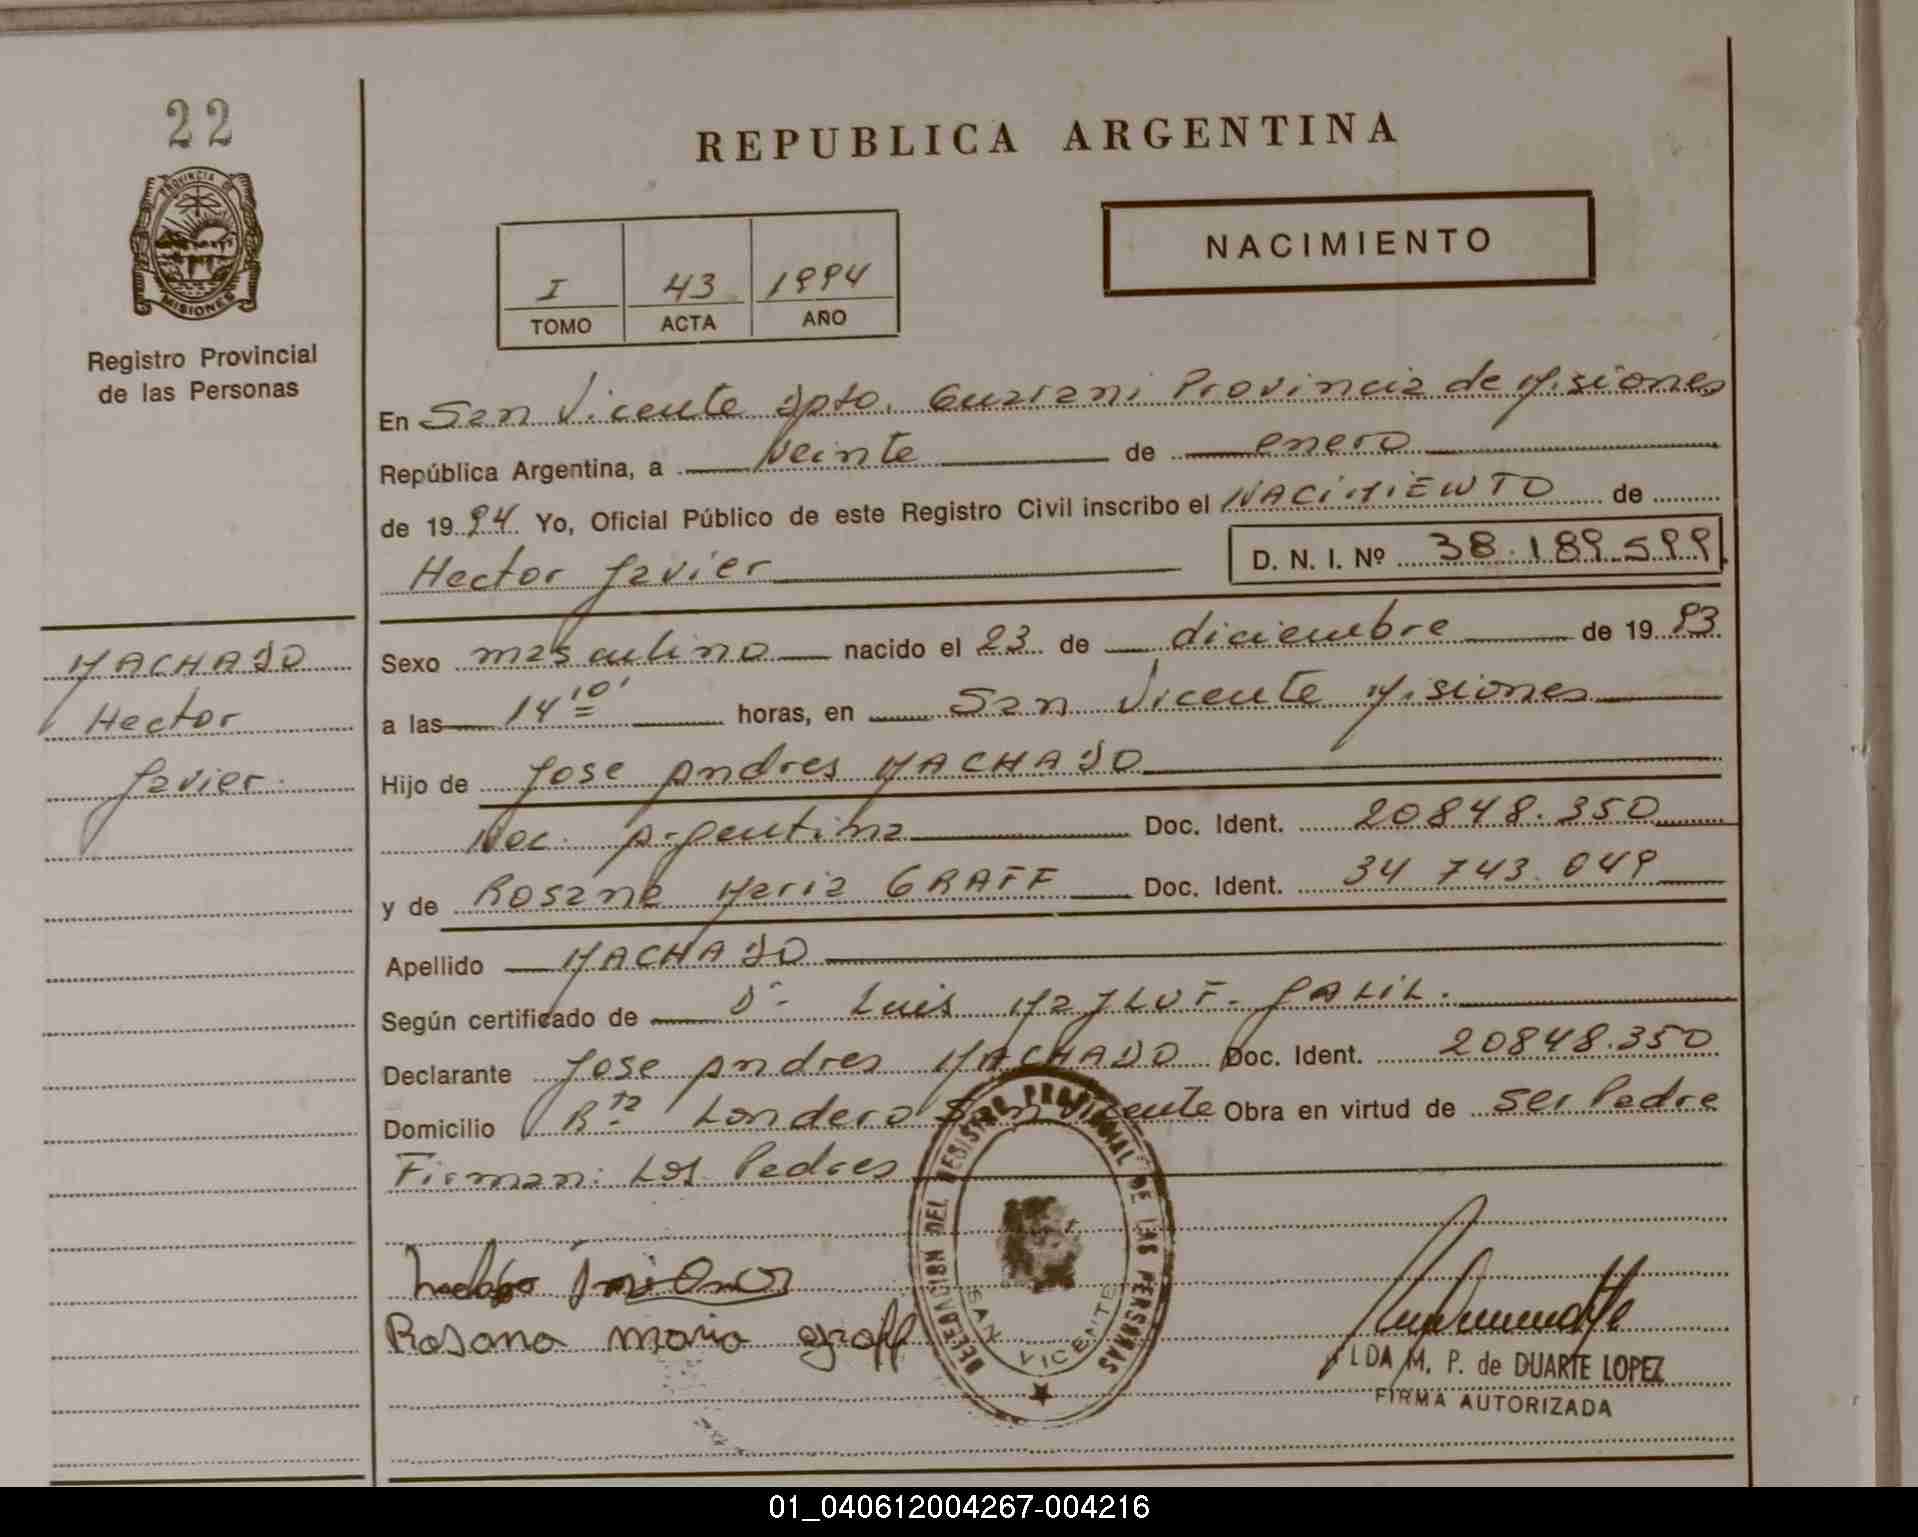 22
PROVINCIA DE
MISIONES
Registro Provincial
de las Personas
MACHADO
Hector
Javier.
REPUBLICA ARGENTINA
NACIMIENTO
I 43 1994
TOMO ACTA AÑO
En San Vicente Dpto. Guarani Provincia de Misiones
República Argentina, a veinte de enero
de 1994 Yo, Oficial Público de este Registro Civil inscribo el NACIMIENTO de
Hector Javier D. N. I. Nº 38.189.599
Sexo masculino nacido el 23 de diciembre de 1993
a las 14 10' horas, en San Vicente Misiones
Hijo de Jose Andres MACHADO
Nac. Argentina Doc. Ident. 20848.350
y de Rosana Maria GRAFF Doc. Ident. 34 743.049
Apellido MACHADO
Según certificado de Dr. Luis GALIL.
Declarante Jose Andres MACHADO Doc. Ident. 20848.350
Domicilio Rta Londero San Vicente Obra en virtud de ser Padre
Firman: Los Padres
Rosana maria graff
DELEGACION DEL REGISTRO PROVINCIAL DE LAS PERSONAS
SAN VICENTE
LDA M. P. de DUARTE LOPEZ
FIRMA AUTORIZADA
01_040612004267-004216